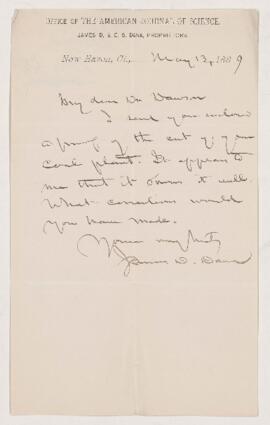 OFFICE OF THE AMERICAN JOURNAL OF SCIENCE.
JAMES D. & E. S. DANA, PROPRIETORS.
New Haven, Ct., May 13, 1889
My dear Dr Dawson
I send you enclosed
a proof of the cut of your
coal plant. It appears to
me that it does it well.
What corrections would
you have made.
Yours very truly
James D. Dana